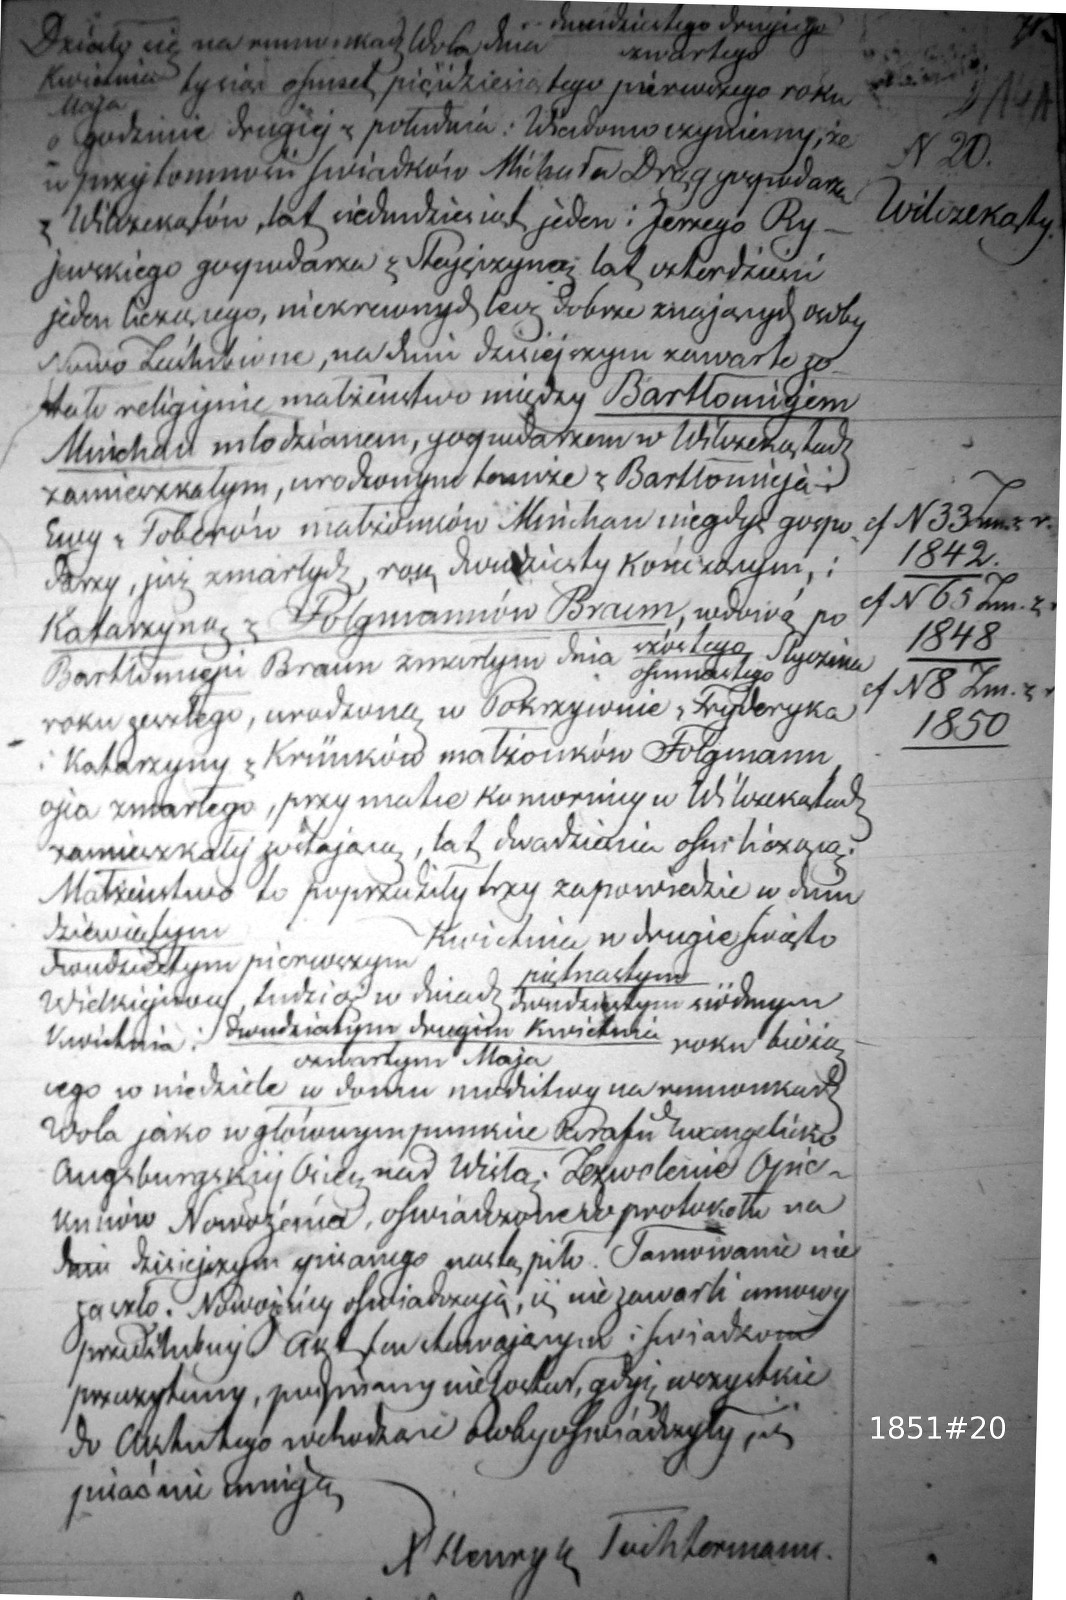 Działo się na rumunkach Wola dnia dwudziestego drugiego
czwartego
Kwietnia tysiąc osmset pięćdziesiątego pierwszego roku
Maja
o godzinie drugiej z południa: Wiadomo czyniemy, że
w przytomności świadków Michała Drąg gospodarza
z Wilczekątów, lat siedmdziesiąt jeden i Jerzego Ry-
jewskiego gospodarza z lat czterdzieści
jeden liczącego, niekrewnych lecz dobrze znajanych osoby
Nowo Zaślubione, na dniu dzisiejszym zawarte zo-
stało religijnie małżeństwo między Bartłomiejem
Münchau młodzianem, gospodarzem w Wilczekątach
zamieszkałym, urodzonym tamże z Bartłomieja i
Ewy z Toberów małżonków Münchau niegdyś gospo-
darzy, już zmarłych, rok dwudziesty kończącym, i
Katarzyną z Folgmannów Braun, wdową po
Bartłomieju Braun zmarłym dnia szóstego Stycznia
osmnastego
roku zeszłego, urodzoną w Pokrzywnie z Fryderyka
i Katarzyny z Krünków małżonków Folgmann
ojca zmarłego, przy matce komornicy w Wilczekątach
zamieszkałej zostającą, lat dwadzieścia ośm liczącą.
Małżeństwo to poprzedziły trzy zapowiedzie w dniu
dziewiątym
Kwietnia w drugie święto
dwudziestym pierwszym
Wielkiejnocy, tudzież w dniach piętnastym
dwudziestym siódmym
Kwietnia i dwudziestym drugim Kwietnia roku bieżą-
czwartym Maja
cego w niedziele w domu modlitwy na rumunkach
Wola jako w głównym punkcie Parafii Ewangelicko
Augsburgskiej Osiek nad Wisłą. Zezwolenie Opie-
kunów Nowożeńca, oświadczone w protokołu na
dniu dzisiejszym spisanego nastąpiło. Tamowanie nie
zaszło. Nowożeńcy oświadczają, iż nie zawarli umowy
przedślubnej. Akt ten stawającym i świadkom
przeczytany, podpisany nie został, gdyż wszystkie
do Aktu tego wchodzące Osoby oświadczyły, iż
pisać nie umieją
X Henryk Tuchtermann.
N 20.
Wilczekąty.
cf N 33 Zm. z r.
1842.
cf N 65 Zm. z r.
1848
cf N 8 Zm. z r.
1850
1851#20